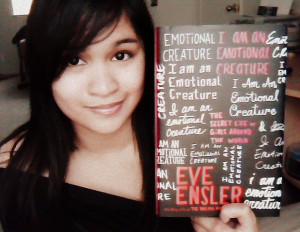 EMOTIONAL
CREATURE
I am an
Emotional
Creature
I am an
emotional
Creature
I AM AN
EMOTIONAL
CREATURE
I AM AN
EMOTIONAL
CREATURE
CREATURE
I AM AN
EMOTIONAL
CREATURE
I Am An
Emotional
Creature
THE
SECRET LIFE OF
GIRLS AROUND
THE WORLD
I am an
Emotional
Creature
i am an
emotional
creature
EVE
ENSLER